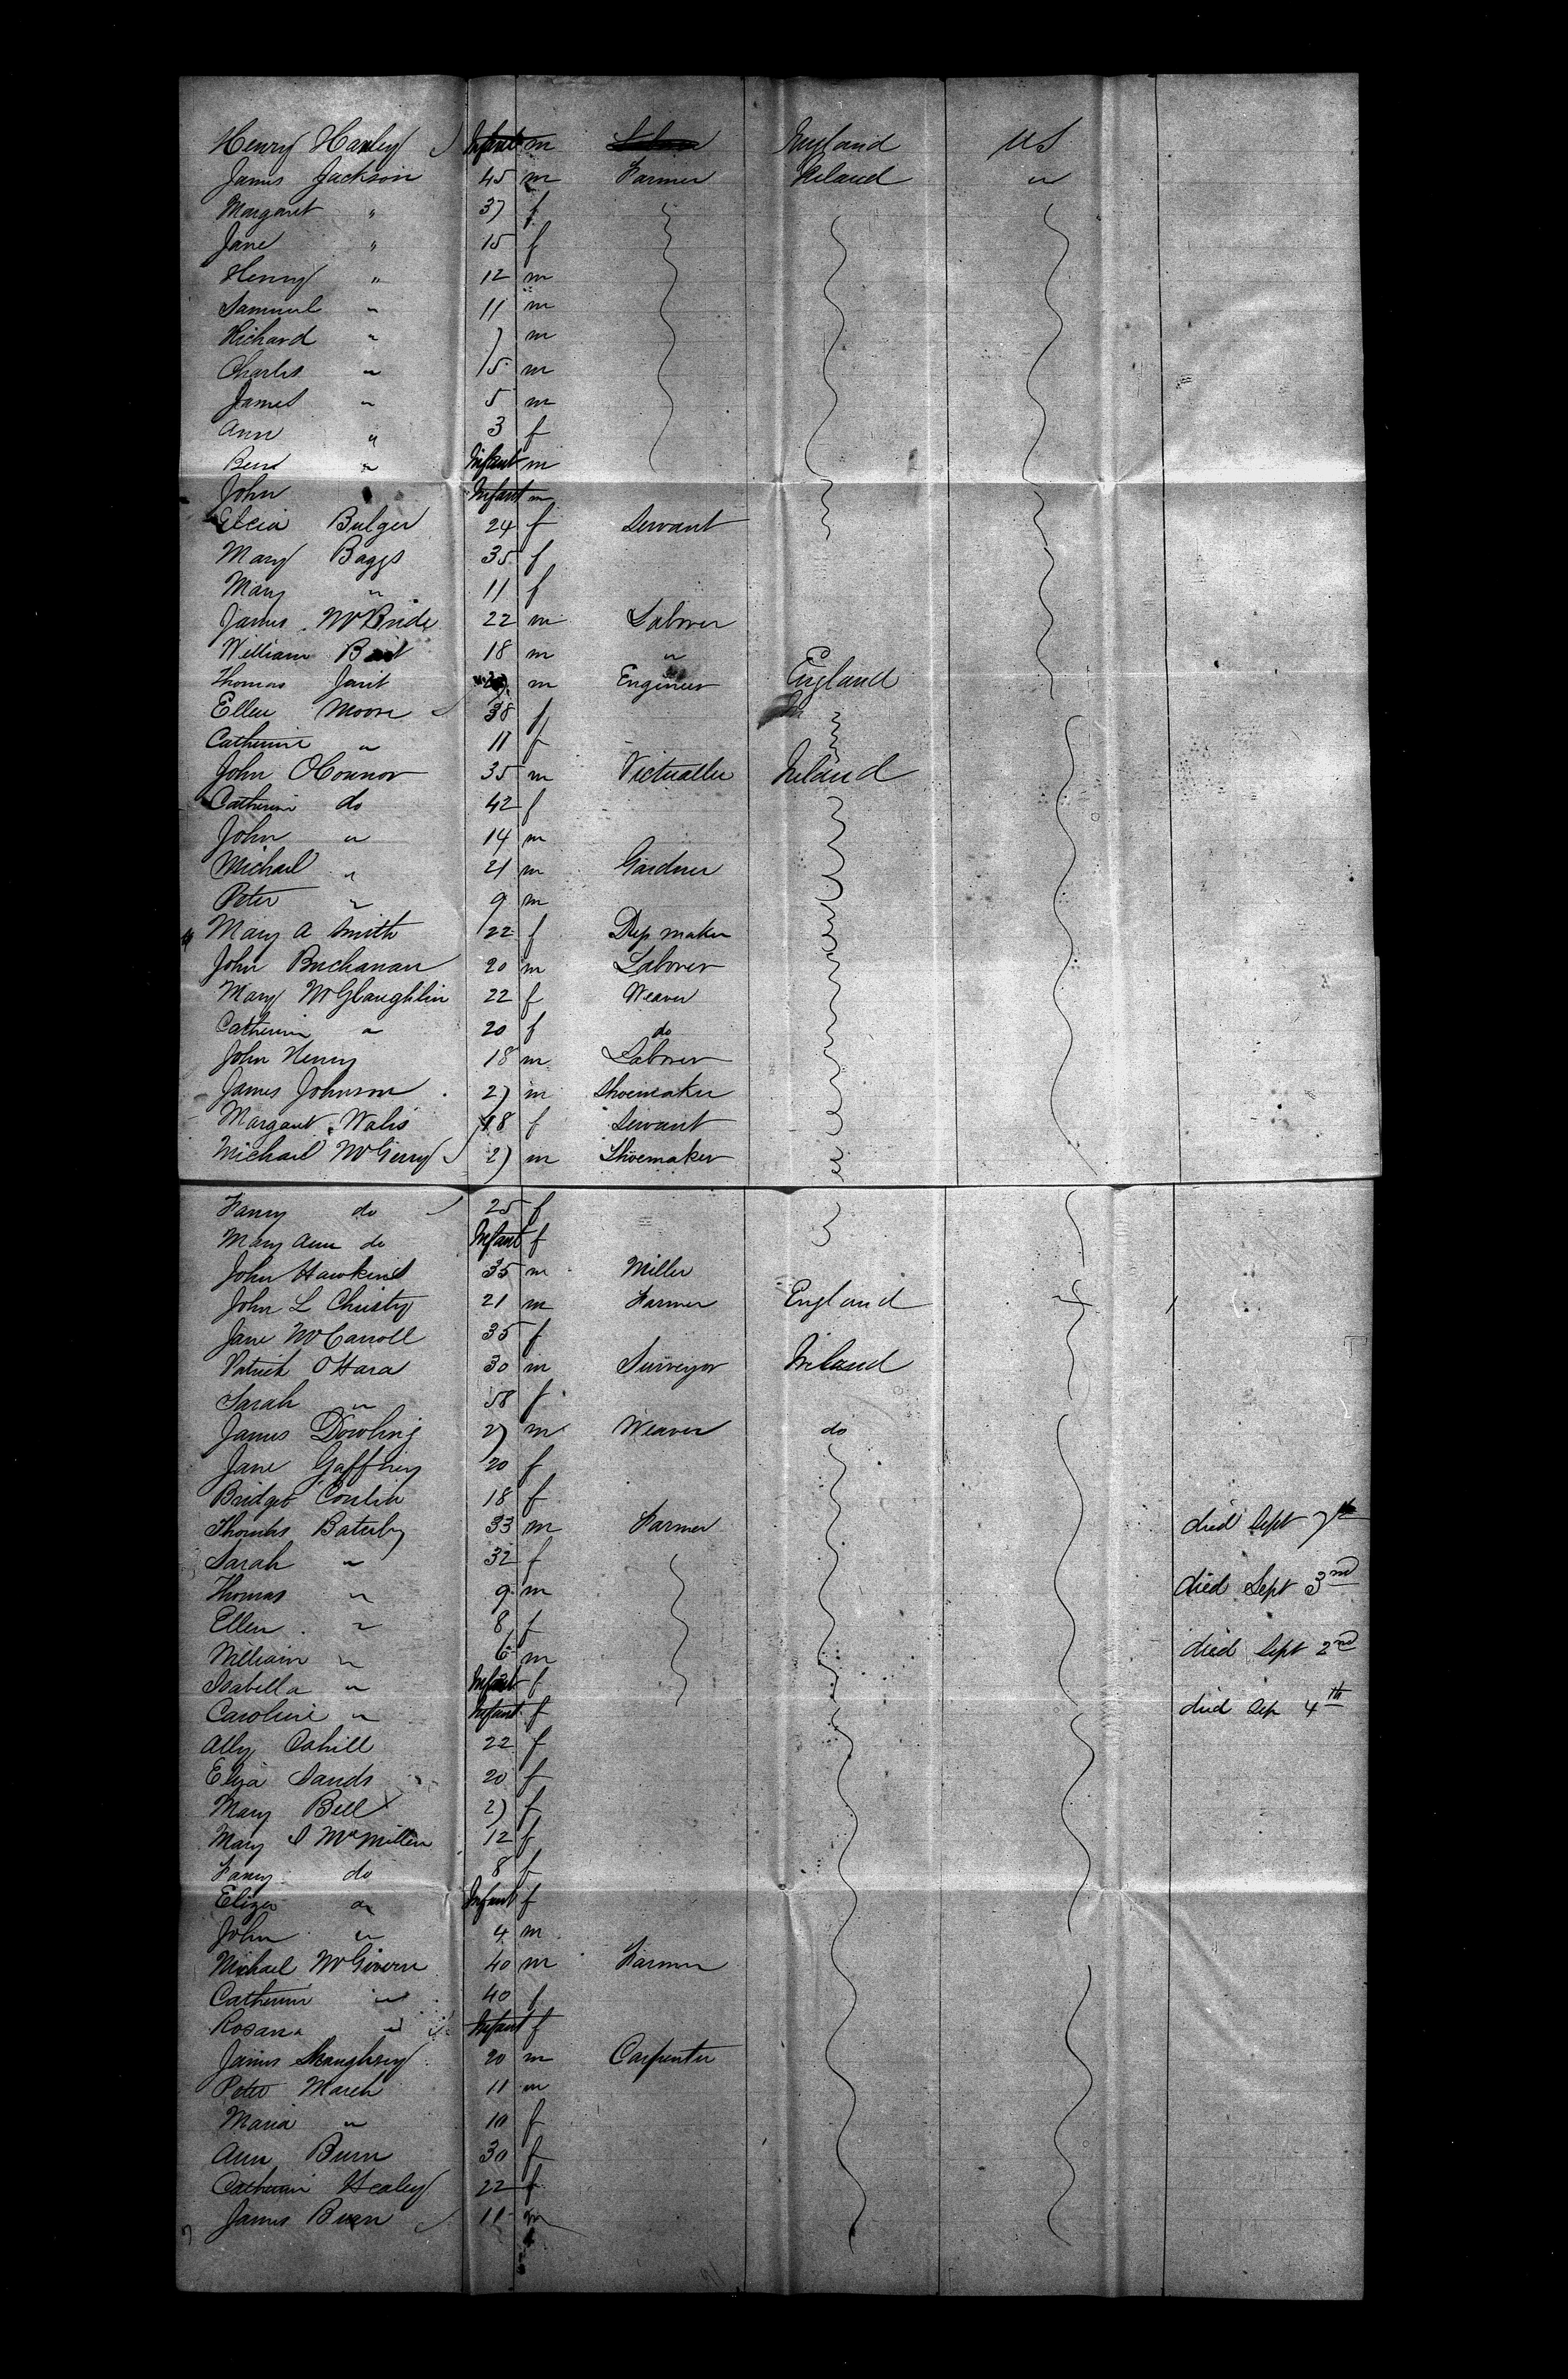 Henry Hanley Infant m Labor England US
James Jackson 45 m Farmer Ireland "
Margaret " 37 f
Jane " 15 f
Henry " 12 m
Samuel " 11 m
Richard " 7 m
Charles " 5 m
James " 5 m
Ann " 3 f
Benj " Infant m
John Infant m
Bulger 24 f Servant
Mary Baggs 35 f
Mary " 11 f
James McBride 22 m Laborer
William 18 m "
Thomas Jant m Engineer England
Ellen Moore 38 f
Catherine " 11 f
John OConnor 35 m Victualler Ireland
Catherine do 42 f
John " 14 m
Michael " 21 m Gardner
Peter " 9 m
Mary A Smith 22 f Drep maker
John Buchanan 20 m Laborer
Mary McGlaughlin 22 f Weaver
Catherin " 20 f do
John Henry 18 m Laborer
James Johnson 27 m Shoemaker
Margaret Walis 18 f Servant
Michael McGerry 27 m Shoemaker
Fanny do 25 f
Mary Ann do Infant f
John Hawkins 35 m Miller
John L Christy 21 m Farmer England
Jane McCarroll 35 f
Patrick OHara 30 m Surveyor Ireland
Sarah " 58 f
James Dowling 27 m Weaver do
Jane Gaffney 20 f
Bridget Conlin 18 f
Thomas Batesby 33 m Farmer died Sept 7th
Sarah " 32 f
Thomas " 9 m died Sept 3rd
Ellen " 8 f
William " 6 m died Sept 2nd
Isabella " Infant f
Caroline " Infant f died Sep 4th
Ally Cahill 22 f
Eliza Sands 20 f
Mary Bell 27 f
Mary McMillen 12 f
Fanny do 8 f
Eliza " Infant f
John " 4 m
Michael McGivern 40 m Farmer
Catherin " 40 f
Rosana " Infant f
James 20 m Carpenter
Peter March 11 m
Maria " 10 f
Ann Burn 30 f
Catherin Healey 22 f
James Burn 11 m